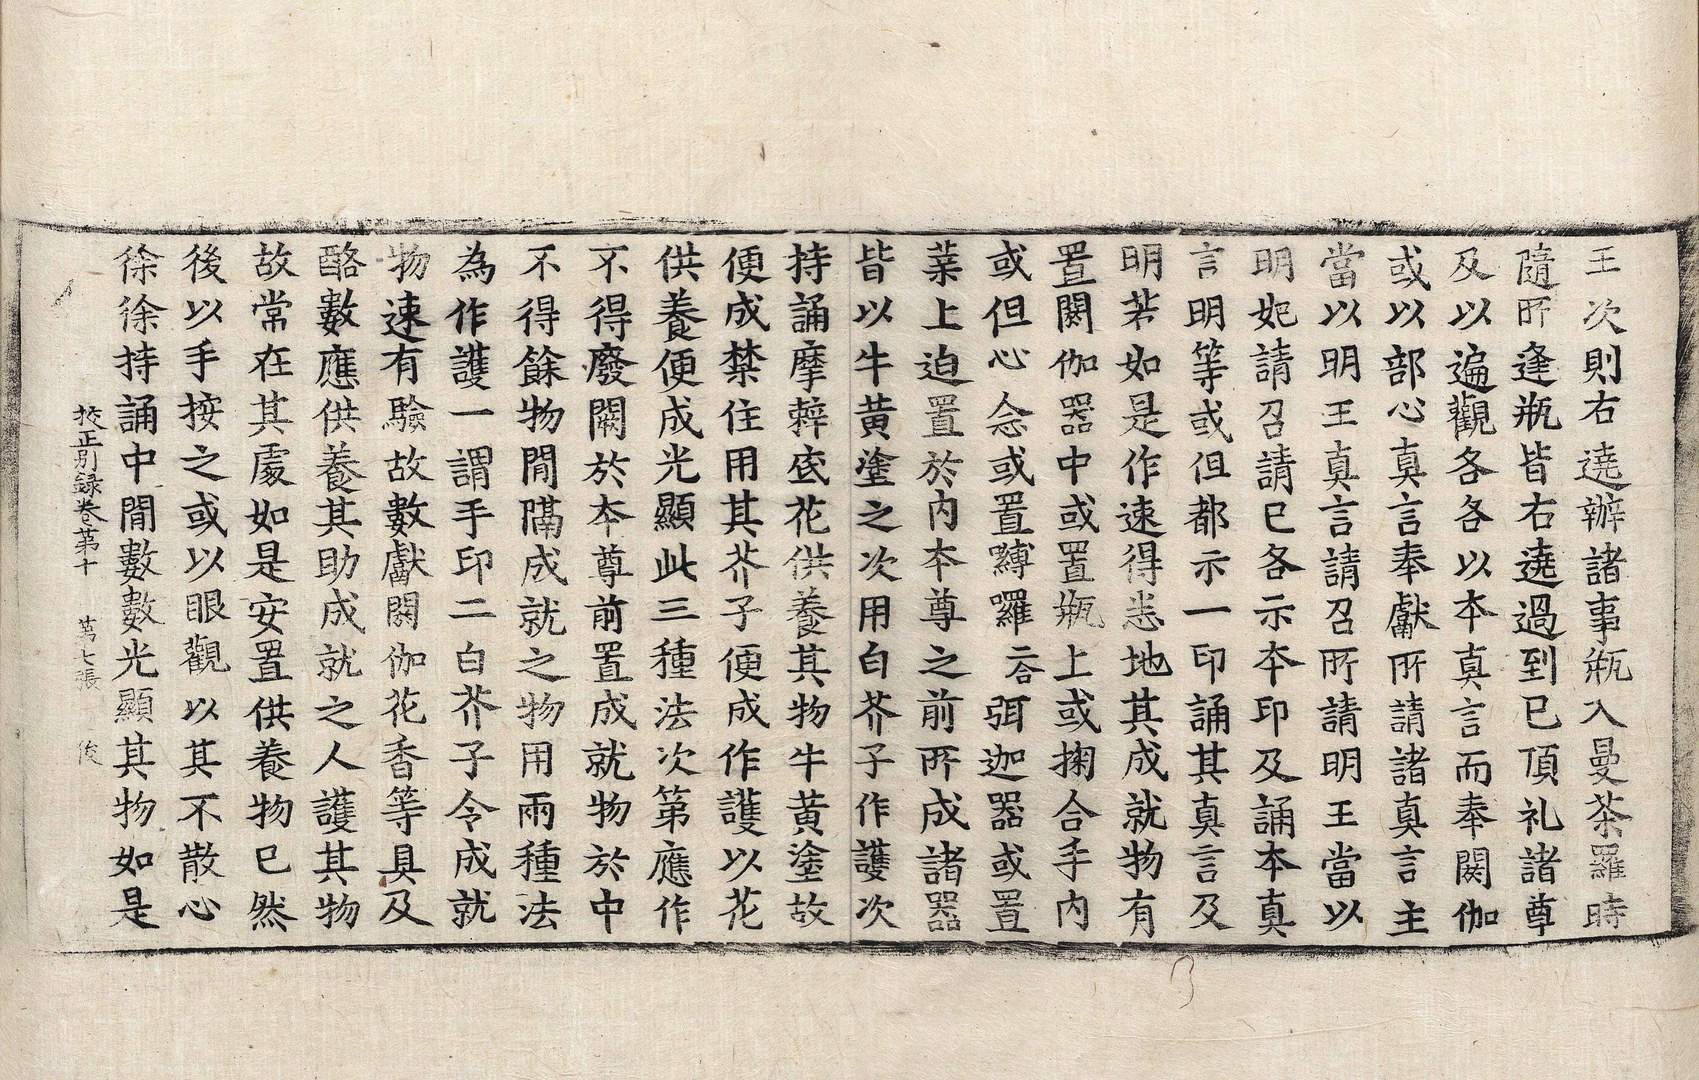 王次則右遶辦諸事瓶入曼荼羅時
隨所逢瓶皆右遶遶過到已頂礼諸尊
及以遍觀各各以本真言而奉閼伽
或以部心真言奉獻所請諸真言主
當以明王真言請召所請明王當以
明妃請召請已各示本印及誦本真
言明等或但都示一印誦其真言及
明若如是作速得悉地其成就物有
置閼伽器中或置瓶上或掬合手內
或但心念或置嚩囉二合弭迦器或置
葉上迫置於內本尊之前所成諸器
皆以牛黃塗之次用白芥子作護次
持誦摩㧊底花供養其物牛黃塗故
便成禁住用其芥子便成作護以花
供養便成光顯此三種法次第應作
不得廢闕於本尊前置成就物於中
不得餘物間隔成就之物用兩種法
為作護一謂手印二白芥子令成就
物速有驗故數獻閼伽花香等具及
酪數應供養其助成就之人護其物
故常在其處如是安置供養物已然
後以手按之或以眼觀以其不散心
徐徐持誦中間數數光顯其物如是
挍正別錄卷第十　第七張　俊